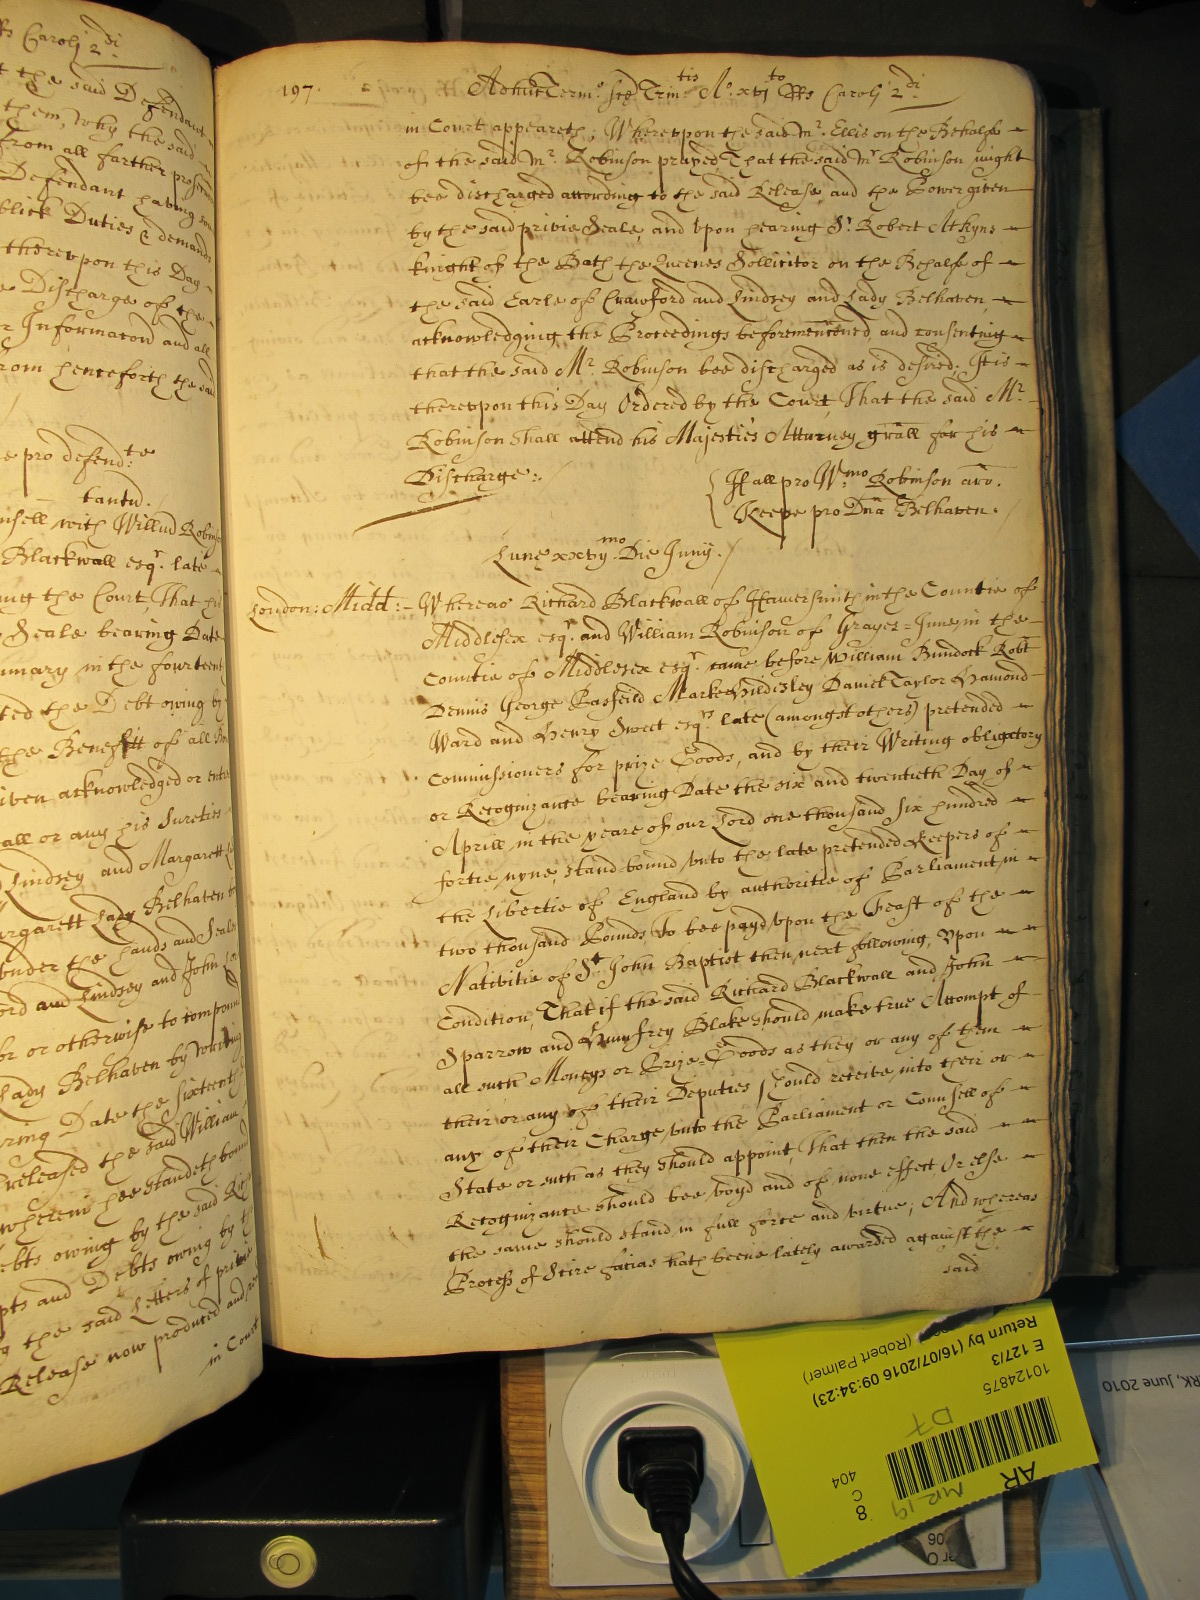 Rs Caroli 2di
t the said Defendant
them, why the said
from all farther prose
Defendant having
blick Duties & demands
therevpon this Day
Discharge of the
r Informacon and all
from henceforth the said
e pro defend:te
tantu.
nsell with Willm Robin
Blackwall esqr. late
ing the Court, That
Seale bearing Date
nuary in the fourteent
ted the Debt owing by
the Benefitt of all
iven acknowledged or
all or any his Sureties
Lindsey and Margarett
argarett Lady Belhaven
vnder the hands and Seales
ord and Lindsey and John
or or otherwise to compound
Lady Belhaven by
ring Date the sixteenth
released the said William
wherein hee standeth bound
ebts owing by the said
pts and Debts owing by
g the said Letters of privie
Release now produced and
in Court
197.
Adhuc Termo. Trin:tis Ao. xvj to Rs Caroli 2di
in Court appeareth; Wherevpon the said Mr. Ellis on the Behalfe
of the said Mr. Robinson prayed That the said Mr Robinson might
bee discharged according to the said Release, and the Power given
by the said privie Seale, and vpon hearing Sr Robert Atkyns
knight of the Bath the Queenes Sollicitor on the Behalfe of
the said Earle of Crawford and Lindsey and Lady Belhaven
acknowledging the Proceedings beforemencened, and consenting
that the said Mr. Robinson bee discharged as is desired; It is
therevpon this Day Ordered by the Court, That the said Mr.
Robinson shall attend his Majesties Atturney grall for his
Discharge:
Hall pro Wmo Robinson ar.
Keepe pro Dna Belhaven.
Lune xxvijmo Die Junij.
London: Midd:
Whereas Richard Blackwall of Hamersmith in the Countie of
Middlesex esqr. and William Robinson of Grayes-Inne, in the
Countie of Middlesex esqr. came before William Bundock Robt
Dennis George Rasfeild Marke Hildisley Daniel Taylor Hamond
Ward and Henry Sweet esqrs late (amongst others) pretended
Commissioners for prize Goods, and by their Writing obligatory
or Recognizance bearing Date the six and twentieth Day of
Aprill in the yeare of our Lord one thousand six hundred
fortie nyne, stand bound vnto the late pretended Keepers of
the Libertie of England by authoritie of Parliament, in
two thousand Pounds, To bee payd vpon the Feast of the
Nativitie of St. John Baptist then next following, Vpon
Condition, That if the said Richard Blackwall and John
Sparrow and Humfrey Blake should make true Accompt of
all such Moneys or Prize-Goods as they or any of them
their or any of their Deputies should receive into their or
any of their Charge, vnto the Parliament or Counsell of
State or such as they should appoint, That then the said
Recognizance should bee voyd and of none effect Or else
the same should stand in full force and virtue; And whereas
Process of Scire facias hath beene lately awarded against the
said
AR
8
C
404
D7
10124875
E 127/3
Return by (16/07/2016 09:34:23)
(Robert Palmer)
RK, June 2010